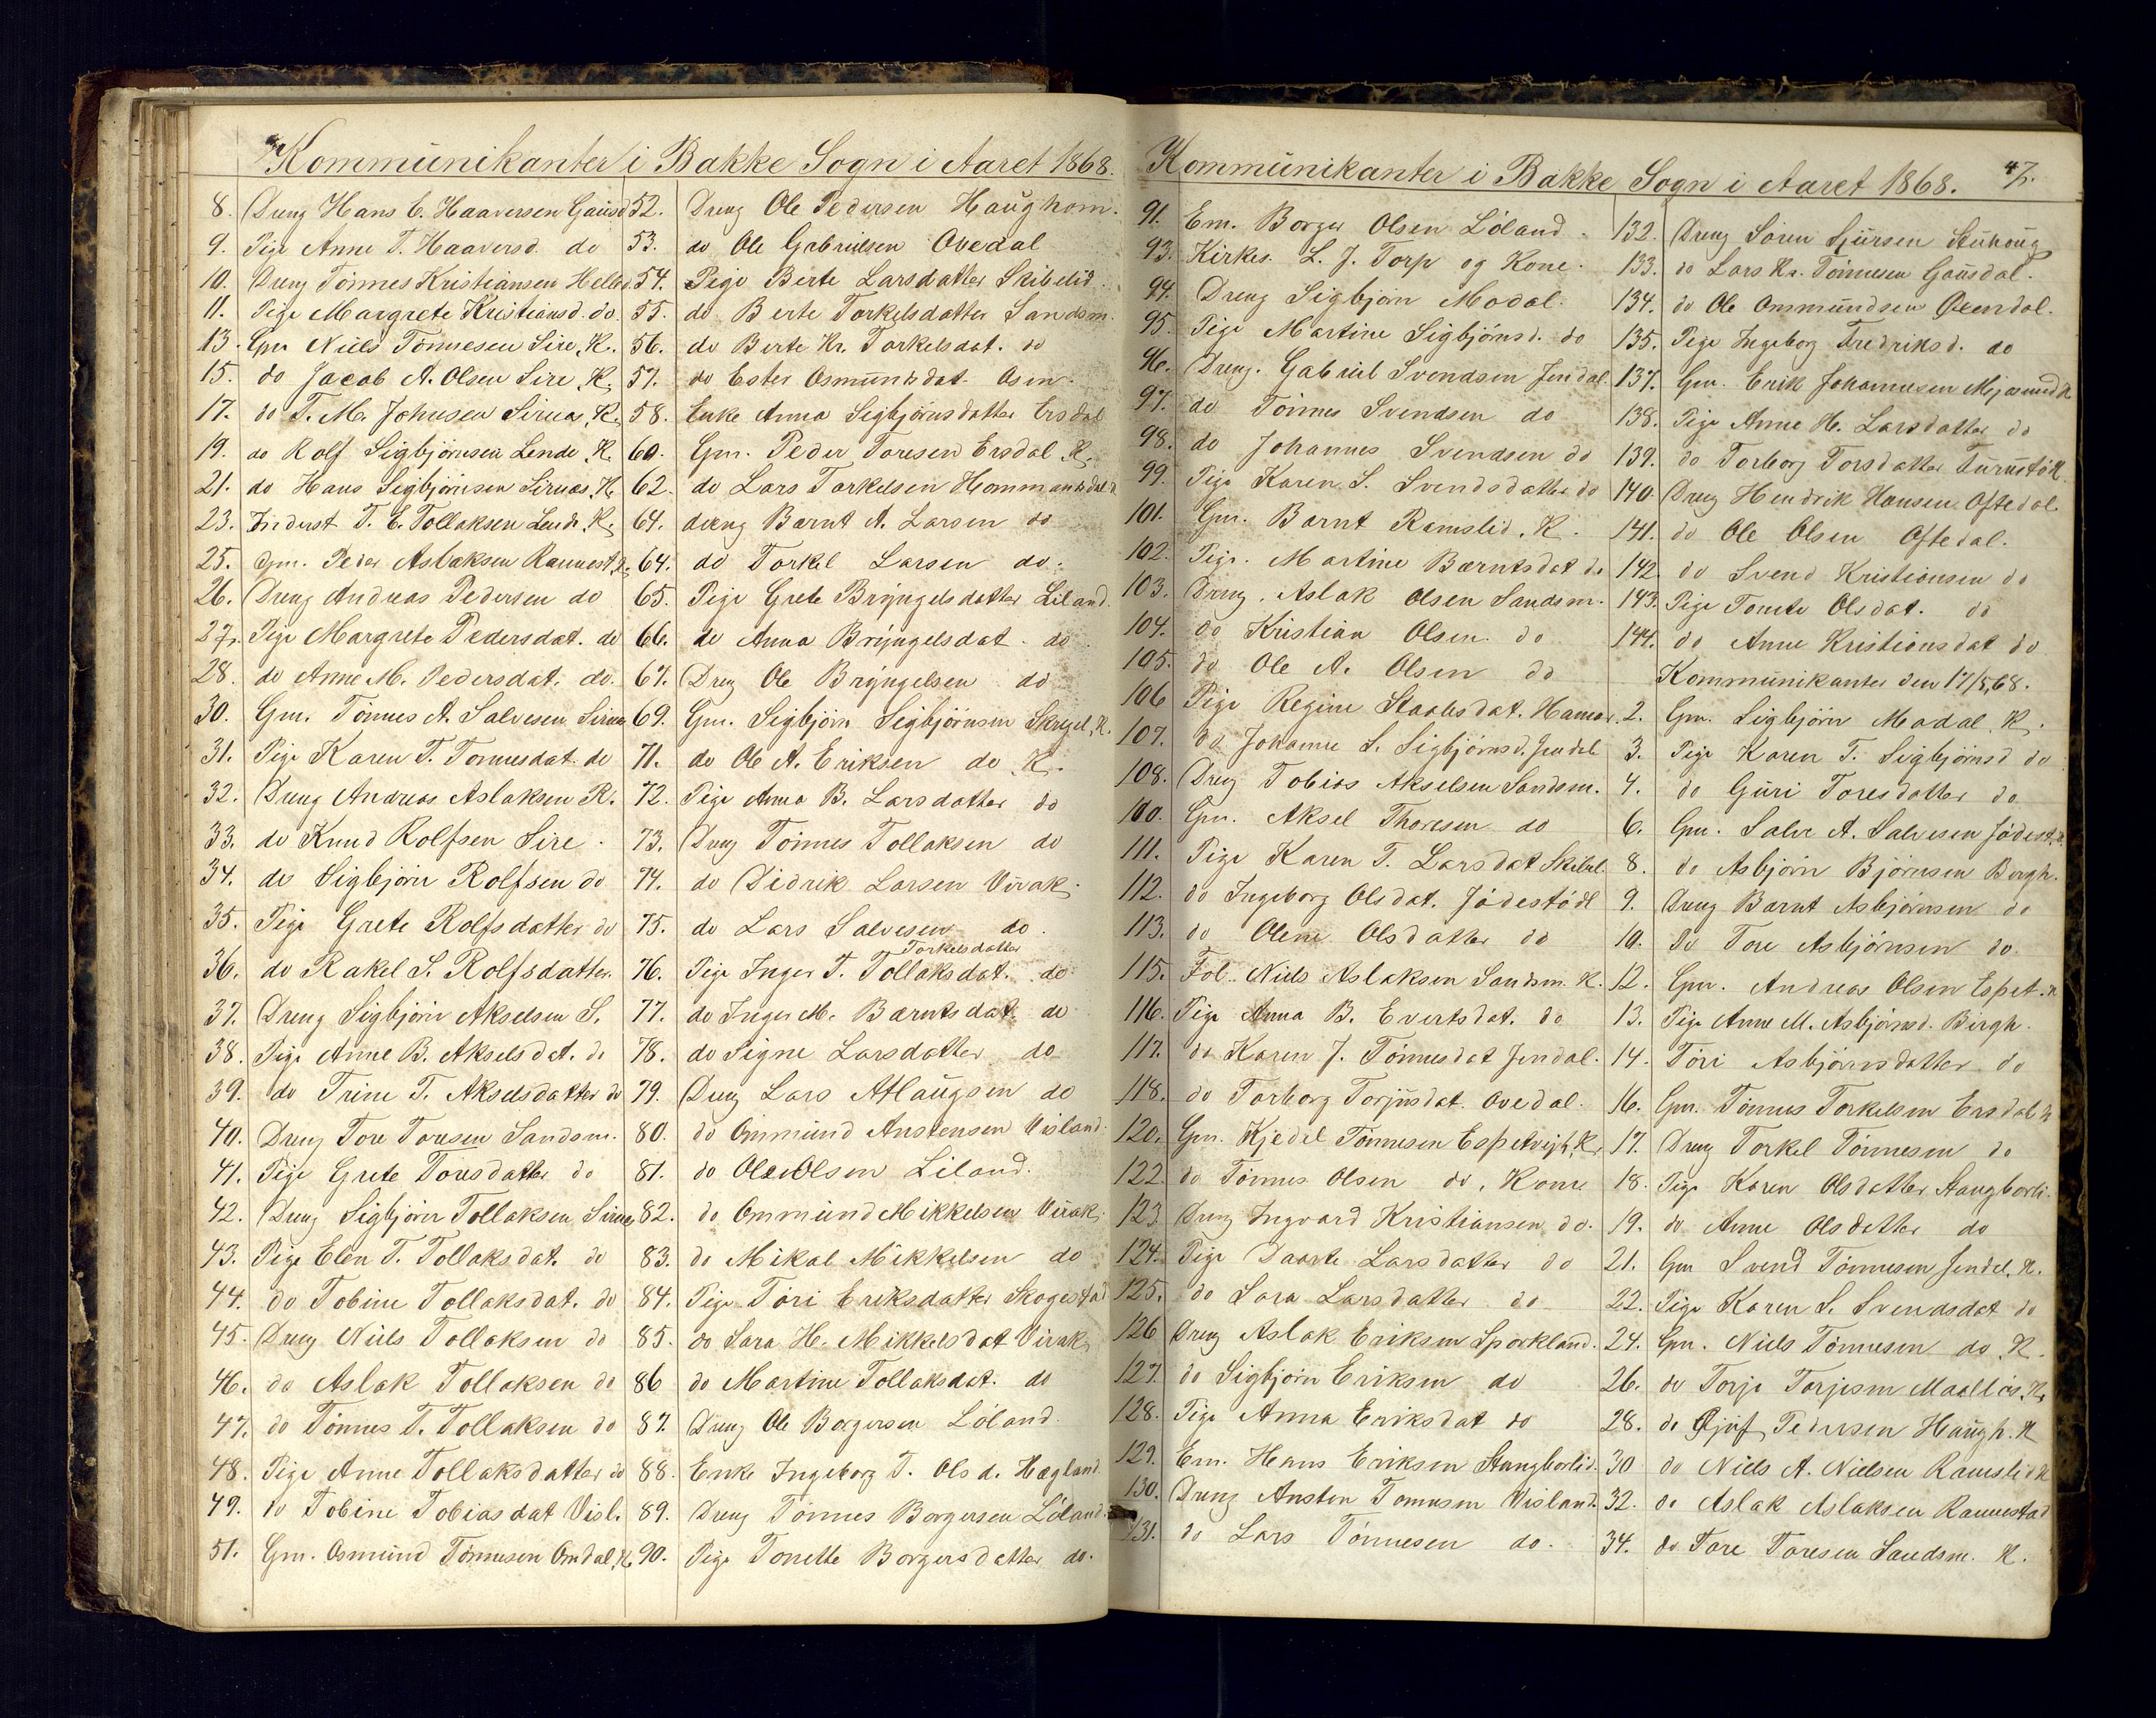 Kommunikanter i Bakke Sogn i Aaret 1868.
8. Dreng Hans C. Haaversen Gausd.
9. Pige Anne T. Haaversd. do
10. Dreng Tönnes Kristiansen Helle
11. Pige Margrete Kristiansd. do.
13. Gm. Niels Tönnesen Sire, K.
15. do Jacob A. Olsen Sire, K.
17. do T. M. Johnsen Sirnes, K.
19. do Rolf Sigbjörnsen Lende, K.
21. do Hans Sigbjörnsen Sirnæs, K.
23. Inderst T. E. Tollaksen Lende, K.
25. Gm. Peder Aslaksen Rannest, K.
26. Dreng Andreas Pedersen do
27. Pige Margrete Pedersdat. do
28. do Anne M. Pedersdat. do.
30. Gm. Tönnes A. Salvesen Sirnæs
31. Pige Karen T. Tonnesdat. do
32. Dreng Andreas Aslaksen R.
33. do Knud Rolfsen Sire.
34. do Sigbjörn Rolfsen do
35. Pige Grete Rolfsdatter do
36. do Rakel S. Rolfsdatter.
37. Dreng Sigbjörn Akselsen S.
38. Pige Anne B. Akselsdt. do
39. do Trine T. Akselsdatter do
40. Dreng Tore Toresen Sandsm.
41. Pige Grete Toresdatter do
42. Dreng Sigbjörn Tollaksen, Sirnæs
43. Pige Elen T. Tollaksdat. do
44. do Tobine Tollaksdat. do
45. Dreng Niels Tollaksen do
46. do Aslak Tollaksen do
47. do Tönnes T. Tollaksen do
48. Pige Anne Tollaksdatter do
49. do Tobine Tobiasdat Visl.
51. Gm. Osmund Tönnesen Omdal, K.
52. Dreng Ole Pedersen Haughom.
53. do Ole Gabrielsen Ovedal
54. Pige Berte Larsdatter Skibelid.
55. do Berte Torkelsdatter Sandsm.
56. do Berte Kr. Torkelsdat. do
57. do Ester Osmundsdat. Osen.
58. Enke Anna Sigbjörnsdatter Ersdal
60. Gm. Peder Toresen Ersdal, K.
62. do Lars Torkelsen Hommansdal
64. dreng Bærnt A. Larsen do
64. do Torkel Larsen do.
65. Pige Grete Bryngelsdatter Liland.
66. do Anna Bryngelsdat. do.
67. Dreng Ole Bryngelsen do
69. Gm. Sigbjörn Sigbjörnsen Skegel, K.
71. do Ole A. Eriksen do K.
72. Pige Anna B. Larsdatter do
73. Dreng Tönnes Tollaksen do
74. do Didrik Larsen Virak.
75. do Lars Salvesen do.
Torkelsdatter
76. Pige Inger T. Tollaksdat. do
77. do Inger M. Bærntsdat. do
78. do Signe Larsdatter do
79. Dreng Lars Atlaugsen do
80. do Ommund Anstensen Visland.
81. do Ole Olsen Liland.
82. do Ommund Mikkelsen Virak.
83. do Mikal Mikkelsen do
84. Pige Töri Eriksdatter Skogestad
85. do Sara H. Mikkelsdat Virak.
86 do Martine Tollaksdat. do
87. Dreng Ole Borgersen Löland.
88. Enke Ingeborg T. Olsd. Hægland.
89. Dreng Tönnes Borgersen Löland.
90. Pige Tonette Borgersdatter do.
Kommunikanter i Bakke Sogn i Aaret 1868. 47.
91. Em. Borger Olsen Löland.
93. Kirkes. L. J. Torp og Kone.
94. Dreng Sigbjörn Modal.
95. Pige Martine Sigbjörnsd. do
96. Dreng. Gabriel Svendsen Jendal.
97. do Tönnes Svendsen do
98. do Johannes Svendsen do
99. Pige Karen S. Svendsdatter do
101. Gm. Bærnt Ramslid, K.
102. Pige. Martine Bærntsdat do
103. Dreng. Aslak Olsen Sandsm.
104. do Kristian Olsen. do
105. do Ole A. Olsen do
106 Pige Regine Staalesdat. Hamar.
107. do Johanne S. Sigbjörnsd. Jendal
108. Dreng Tobias Akselsen Sandsm.
100. Gm. Aksel Thoresen do
111. Pige Karen T. Larsdat Skibel.
112. do Ingeborg Olsdat. Jödestödl
113. do Olene Olsdatter do
115. Fol. Niels Aslaksen Sandsm. K.
116. Pige Anna B. Evertsdat. do
117. do Karen J. Tönnesdat Jendal.
118. do Torborg Torjusdat. Ovedal.
120. Gm. Kjedel Tönnesen Espetveigh, K.
122. do Tönnes Olsen do, Kone
123 Dreng Ingvard Kristiansen do.
124. Pige Daarte Larsdatter do
125. do Sara Larsdatter do
126 Dreng Aslak Eriksen Sporkland.
127. do Sigbjörn Eriksen do
128. Pige Anna Eriksdat do
129. Em. Hans Eriksen Stangborlid.
130. Dreng Ansten Tonnesen Visland.
131. do Lars Tönnesen do.
132. Dreng Sören Sjursen Stuhoug
133. do Lars Kr. Tönnesen Gausdal.
134. do Ole Ommundsen Öxendal.
135. Pige Ingeborg Fredriksd. do
137. Gm. Erik Johannesen Mjasund K
138. Pige Anne H. Larsdatter do
139. do Torborg Torsdatter
140. Dreng Hendrik Hansen Oftedal.
141. do Ole Olsen Oftedal.
142. do Svend Kristiansen do
143. Pige Tonete Olsdat. do
144. do Anne Kristiansdat do
Kommunikanter den 17/5, 68.
2. Gm. Sigbjörn Modal, K.
3. Pige Karen T. Sigbjörnsd do
4. do Guri Toresdatter do
6. Gm. Salve A. Salvesen Jödest, K.
8. do Asbjörn Björnsen Bergh.
9. Dreng Bærnt Asbjörnsen do
10. do Tore Asbjörnsen do.
12. Gm. Andreas Olsen Espet. K
13. Pige Anne M. Asbjörnsd. Birgh.
14. Töri Asbjörnsdatter do
16. Gm. Tönnes Torkelsen Ersdal K
17. Dreng Torkel Tönnesen do
18. Pige Karen Olsdatter Stangborli.
19. do Anne Olsdatter do
21. Gm Svend Tönnesen Jendal, K.
22. Pige Karen S. Svendsdat do
24. Gm. Niels Tönnesen do, K.
26. do Torje Torjesen Moollös, K.
28. do Pedersen Haugh. K
30 do Niels A. Nielsen Ramslid K
32. do Aslak Aslaksen Rannestad
34. do Tore Toresen Sandsm. K.